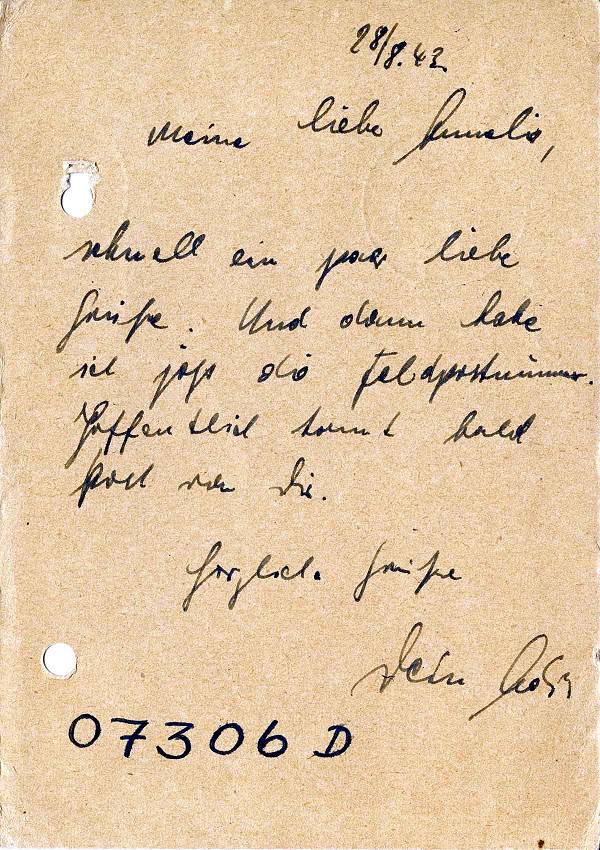 28/8.43.
Meine liebe Annelie,
schnell ein paar liebe
Grüße. Und dann habe
ich jetzt die Feldpostnummer.
Hoffentlich kommt bald
Post von Dir.
Herzliche Grüße
Dein
07306 D